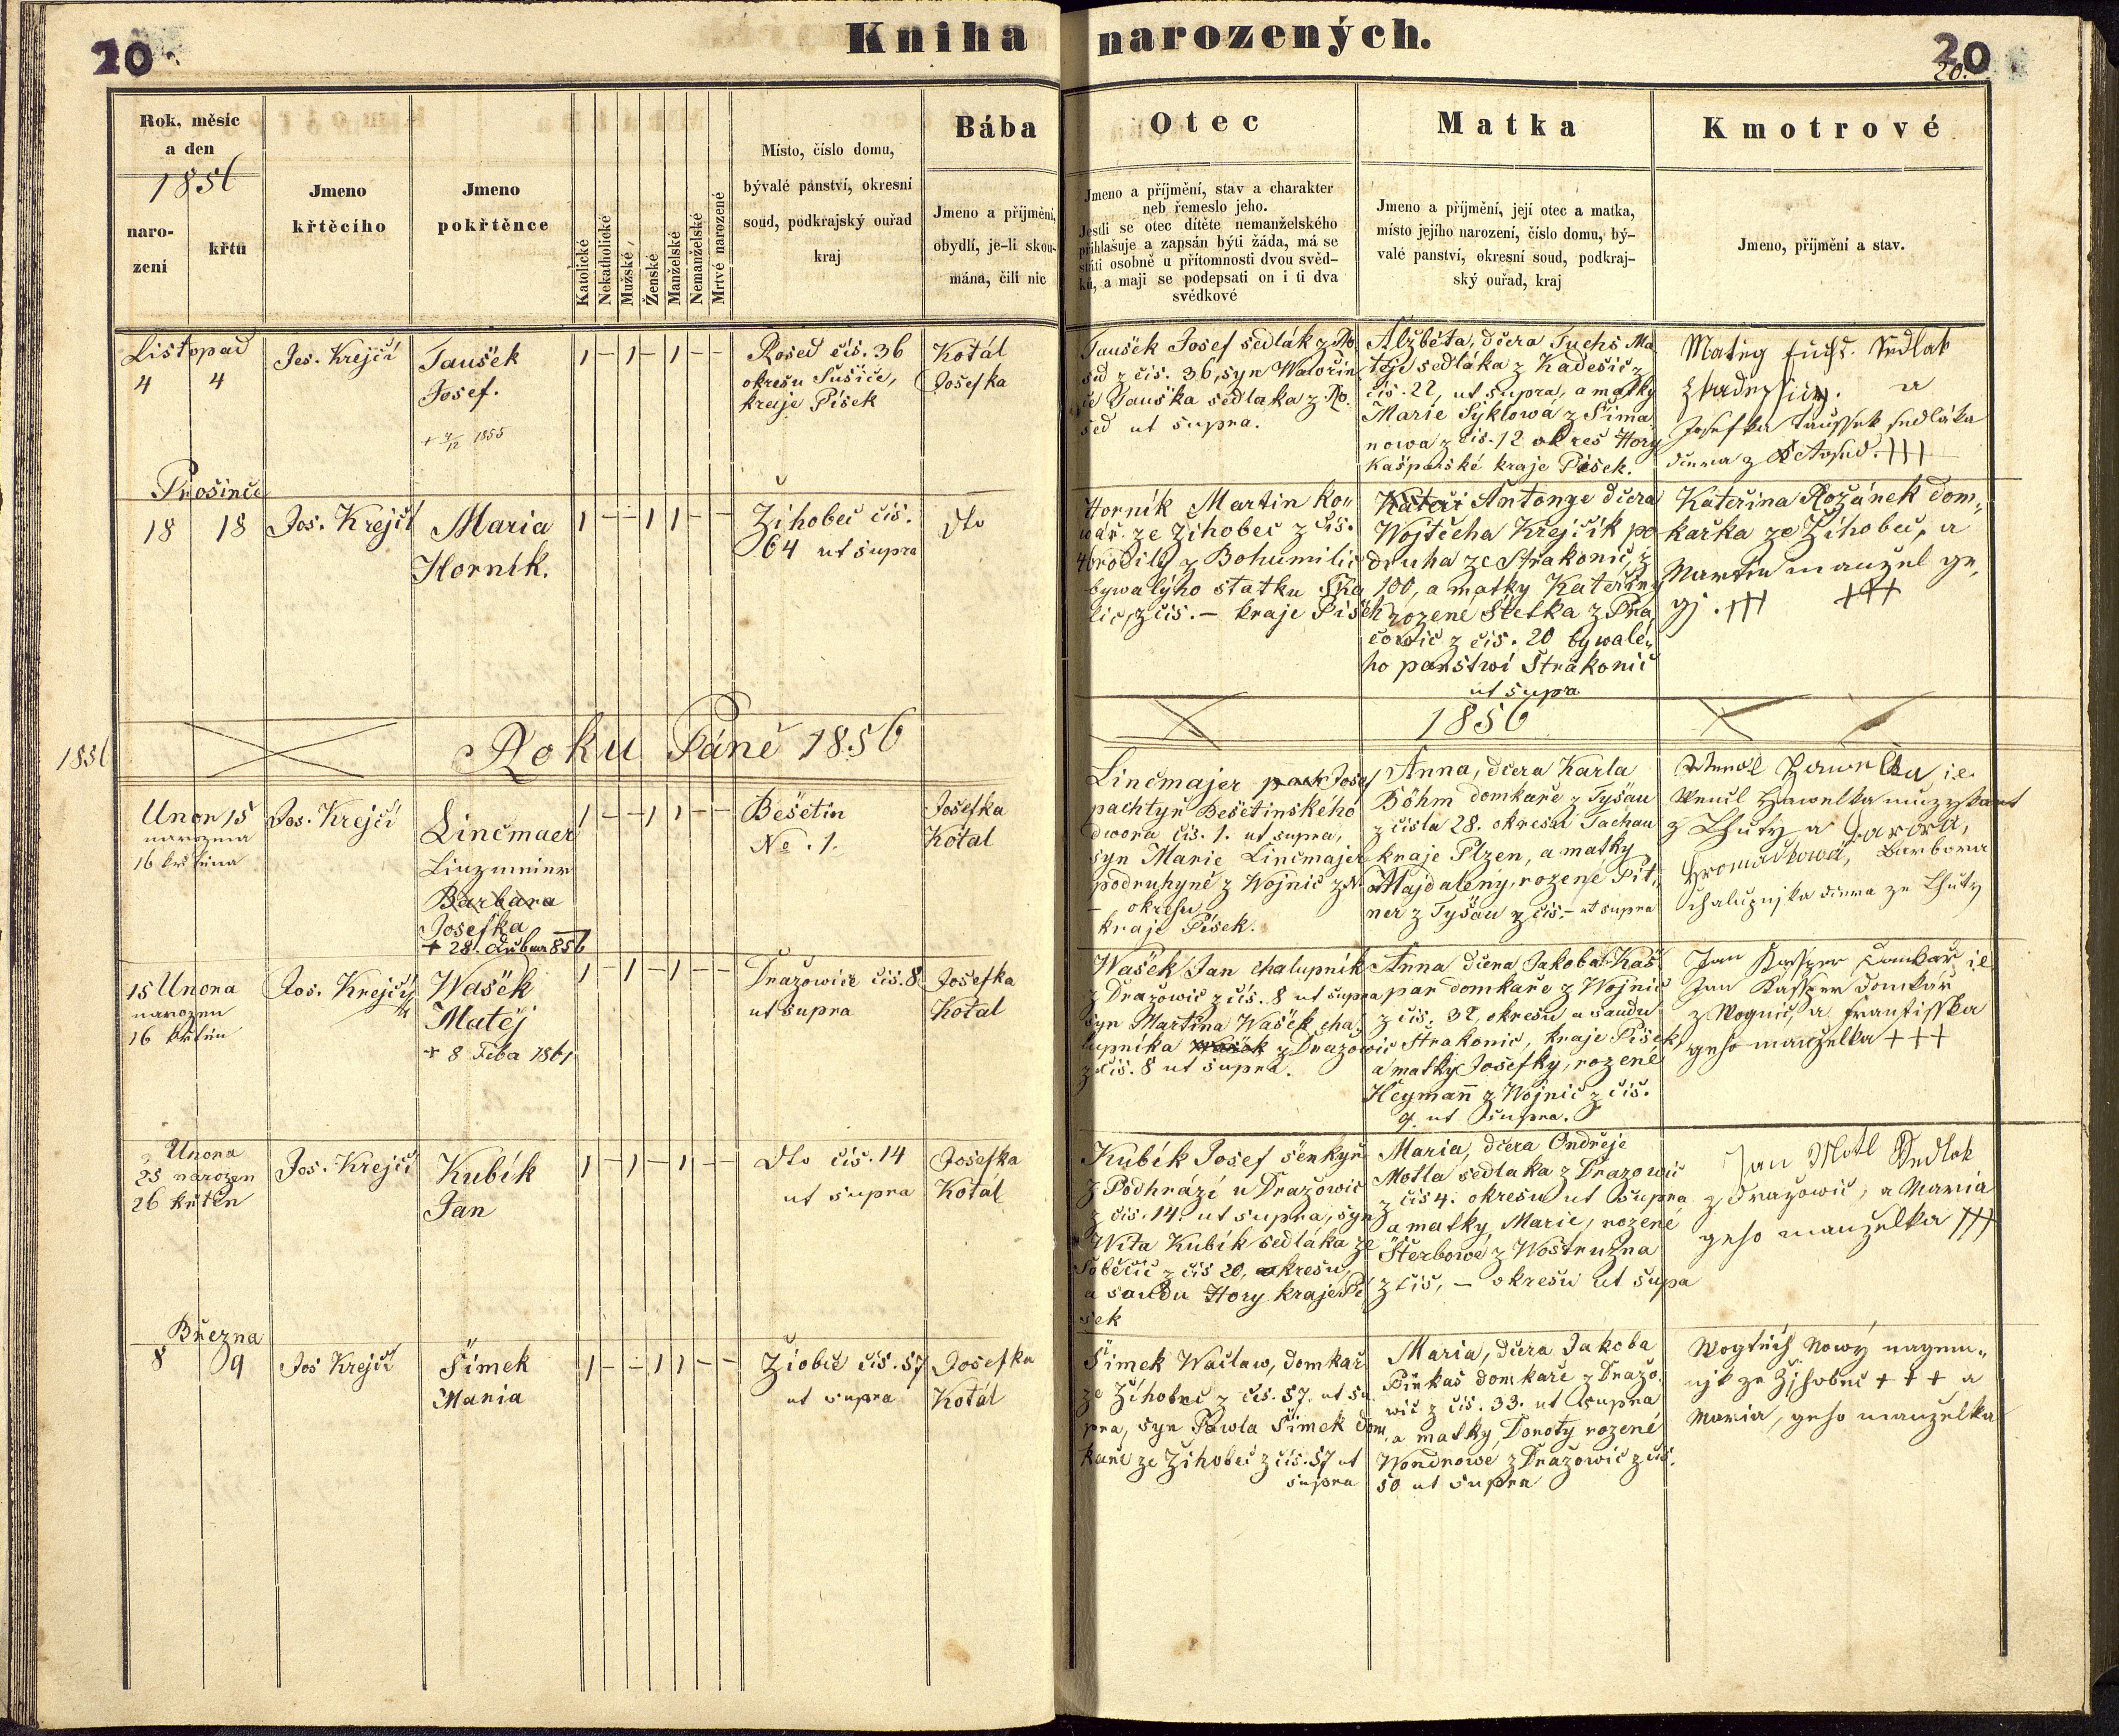 20
Kniha narozených.
20
20.
Rok, měsíc
a den
1856
naro-
zení
křtu
Jmeno
křtěcího
Jmeno
pokřtěnce
Katolické
Nekatholické
Mužské
Ženské
Manželské
Nemanželské
Mrtvě narozené
Místo, číslo domu,
bývalé panství, okresní
soud, podkrajský ouřad
kraj
Bába
Jmeno a příjmění,
obydlí, je-li skou-
mána, čili nic
Otec
Jmeno a příjmění, stav a charakter
neb řemeslo jeho.
Jestli se otec dítěte nemanželského
přihlašuje a zapsán býti žádá, má se
státi osobně u přítomnosti dvou svěd-
ků, a mají se podepsati on i ti dva
svědkové
Matka
Jmeno a příjmění, její otec a matka,
místo jejího narození, číslo domu, bý-
valé panství, okresní soud, podkraj-
ský ouřad, kraj
Kmotrové
Jmeno, příjmění a stav.
Listopad
4 4
Jos. Krejčí
Taušek
Josef.
1 – 1 – 1 – –
Rosed čís. 36
okresu Sušice,
kraje Písek
Kotál
Josefka
Taušek Josef sedlák z Ro
sed z čís. 36, syn Wawřin
ce Tauška sedláka z Ro.
sed ut supra.
Alžběta, dcera Fuchs Ma
těje sedláka z Kadešic z
čís. 22, ut supra, a matky
Marie Syklowa z Šima
nowa z čís. 12 okres Hory
Kašparské kraje Písek.
Matieg Fuchs. Sedlak
z Kadessicz. a
Josefka Taussek sedláka
dcera z Rosed. +++
Prosince
18 18
Jos. Krejčí
Maria
Horník.
1 – – 1 1 – –
Žihobec čís.
64 ut supra
dto
Horník Martin ko„
wář ze Žihobec z čís.
rodilý z Bohumilic
bywalýho statku Ska
lic, z čís. – kraje Písek
Kateři Antonye dcera
Wojtěcha Krejčík po
druha ze Strakonic, z
100, a matky Kateřiny
rozené Štetka z Pra
cowic z čís. 20 bywalé„
ho panstwí Strakonic
ut supra
Kateřina Rožánek dom„
kařka ze Žihobec, a
Martin manžel ge„
gj. +++ +++
1856
Roku Páně 1856
1856
Unor 15
narozena
16 křtěna
Jos. Krejčí
Linčmaer
Linzmeier
Barbara
Josefka
+ 28. Dubna 856
1 – – 1 1 – –
Bešetin
No. 1.
Josefka
Kotál
Linčmajer pach Josef
pachtýř Bešetinského
dwora čís. 1. ut supra,
syn Marie Linčmajer
podruhyně z Wojnic z N
– okresu
kraje Písek.
Anna, dcera Karla
Böhm domkaře z Tyšau
z čísla 28. okresu Tachau
kraje Plzen, a matky
Majdaleny, rozené Pit„
ner z Tyšau z čís. – ut supra
Wencl Hawelka i.e.
Wencl Hawelka muzykant
z Lhuty a Barbora,
Hromadkowá, Barbora
chalupnjka dcera ze Lhuty
15 Unora
narozen
16 křtěn
Jos. Krejčí
Wašek
Matěj
+ 8 Feba 1861
1 – 1 – 1 – –
Dražowice čís. 8
ut supra
Josefka
Kotál
Wašek Jan chalupník
z Dražowic z čís. 8 ut supra
syn Martina Wašek cha„
lupníka Wašek z Dražowic
z čís. 8 ut supra.
Anna dcera Jakoba Kaš
par domkaře z Wojnic
z čís. 32, okresu a saudu
Strakonic, kraje Písek,
a matky Josefky, rozené
Heymann z Wojnic z čís.
9 ut supra.
Jan Kassper Domkař i.e.
Jan Kassper domkář
z Wognic, a Frantisska
geho manželka +++
Unora
25 narozen
26 křtěn
Jos. Krejčí
Kubík
Jan
1 – 1 – 1 – –
dto čís. 14
ut supra
Josefka
Kotál
Kubík Josef šenkýř
z Podhrází u Dražowic
z čís. 14. ut supra, syn
Wíta Kubík sedláka ze
Soběšic z čís 20, okresu,
a saudu Hory kraje Pí
sek
Maria, dcera Ondřeje
Motla sedlaka z Drazowic
z čís 4. okresu ut supra
a matky, Marie, rozené
Šterbowé z Wostružna
z čís, – okresu ut supa
Jan Motl Sedlak
z Drazowic, a Maria
geho manželka +++
Března
8 9
Jos Krejčí
Šimek
Maria
1 – – 1 1 – –
Žiobec čís. 57
ut supra
Josefka
Kotál
Šimek Wáclaw, domkař
ze Žihobec z čís. 57. ut su
pra, syn Pawla Šimek dom
kaře ze Žihobec z čís. 57 ut
supra
Maria, dcera Jakoba
Pinkas domkaře z Dražo„
wic z čís. 33. ut supra
a matky, Doroty rozené
Wondrowé z Dražowic z čís.
50 ut supra
Wogtěch Nowý nagem„
njk ze Žihobec +++ a
Maria, geho manželka